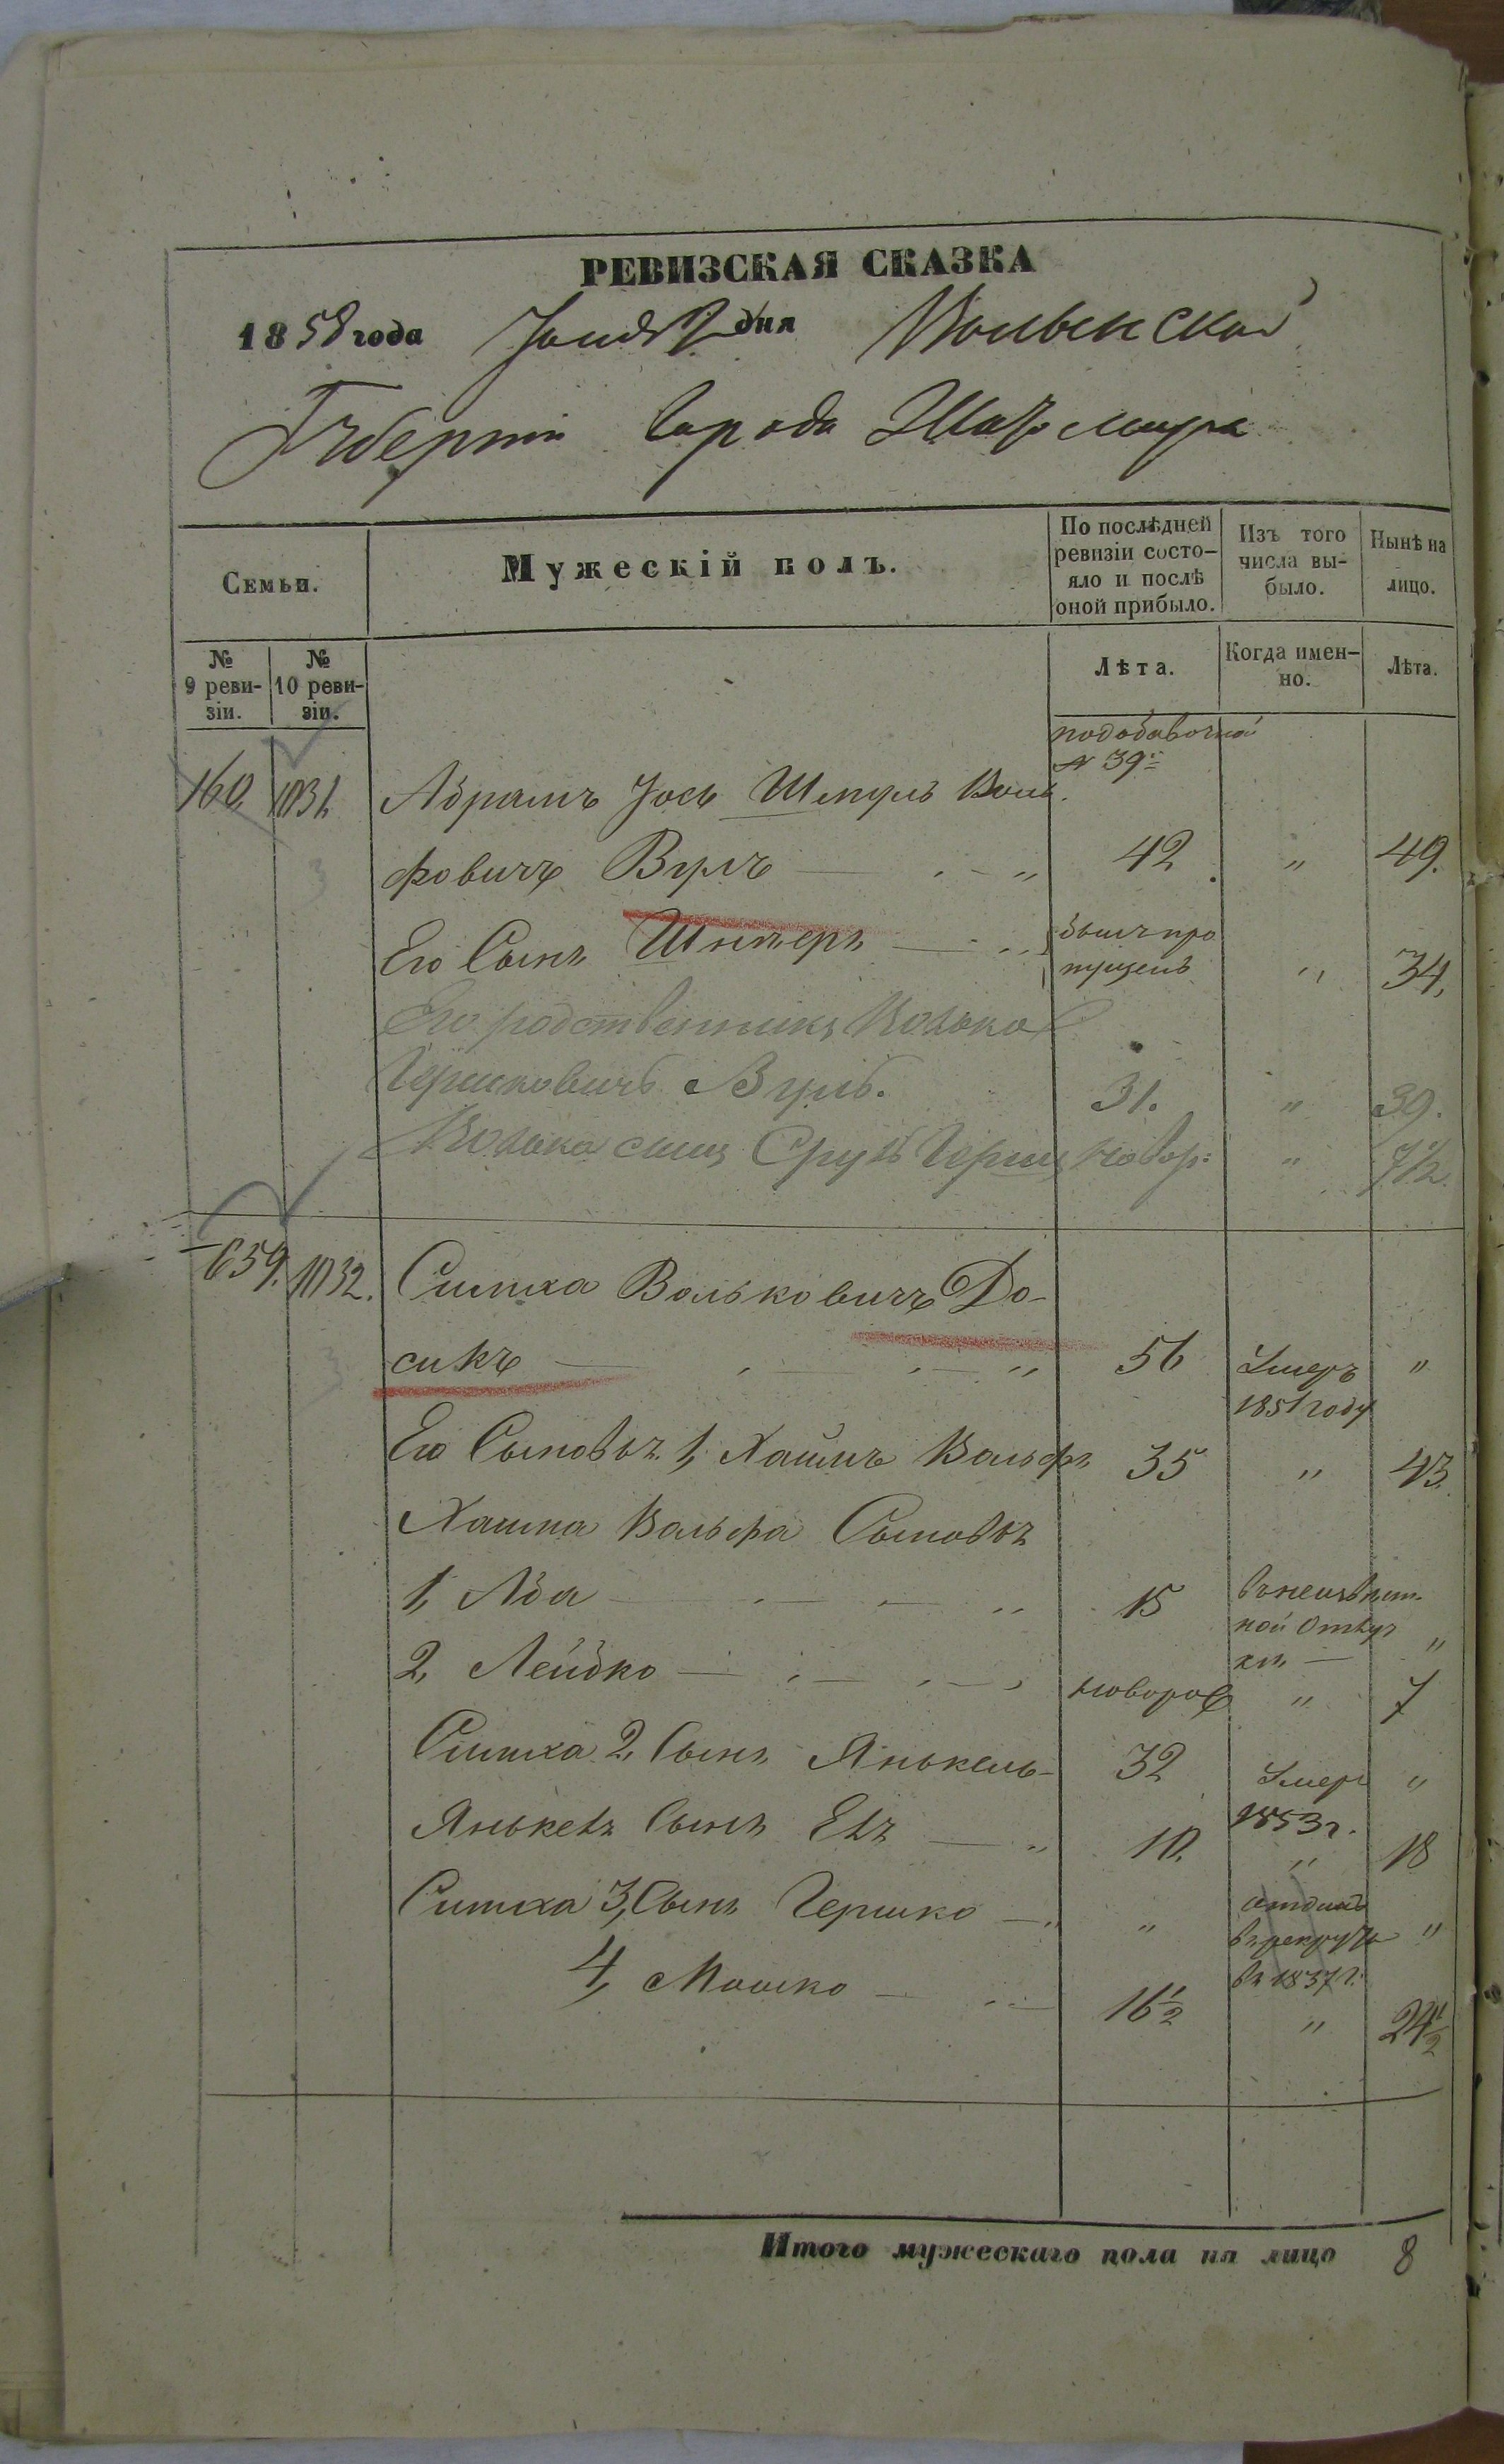 РЕВИЗСКАЯ СКАЗКА
1858 года дня Волынской
Губерніи Города Житомира
Семьи.
Мужескій полъ.
По послѣдней ревизіи состо-
яло и послѣ
оной прибыло.
Изъ того
числа вы-
было.
Нынѣ на
лицо.
№
9 реви-
зіи.
№
10 реви-
зіи.
Лѣта.
Когда имен-
но.
Лѣта.
подобавочной
№ 39й
160. 1031. Абрамъ Іось Шмуль Воль
фовичъ Вулъ 42 „ 49.
Его Сынъ былъ про
пущенъ „ 34,
Его родственникъ Волько
Гершковичъ Вулъ. 31. „ 39.
Волька сынъ Сруль Гершъ новор: „ 7½.
659. 1032. Симха Вольковичъ До-
сикъ 56 Умеръ „
1851 году
Его Сыновья 1, Хаимъ Вольфъ 35 „ 43.
Хаима Вольфа Сыновья
1, Аба 15 въ неизвѣст-
ной отлуч
кѣ „
2, Лейбко новорож „ 7
Симха 2, Сынъ Янькель 32 Умеръ „
1853 г.
Янькеля Сынъ 10. „ 18
Симха 3, Сынъ Гершко „ отданъ
въ рекруты „
въ 1837 г:
4, Мошко 16½ „ 24½
Итого мужескаго пола на лицо 8